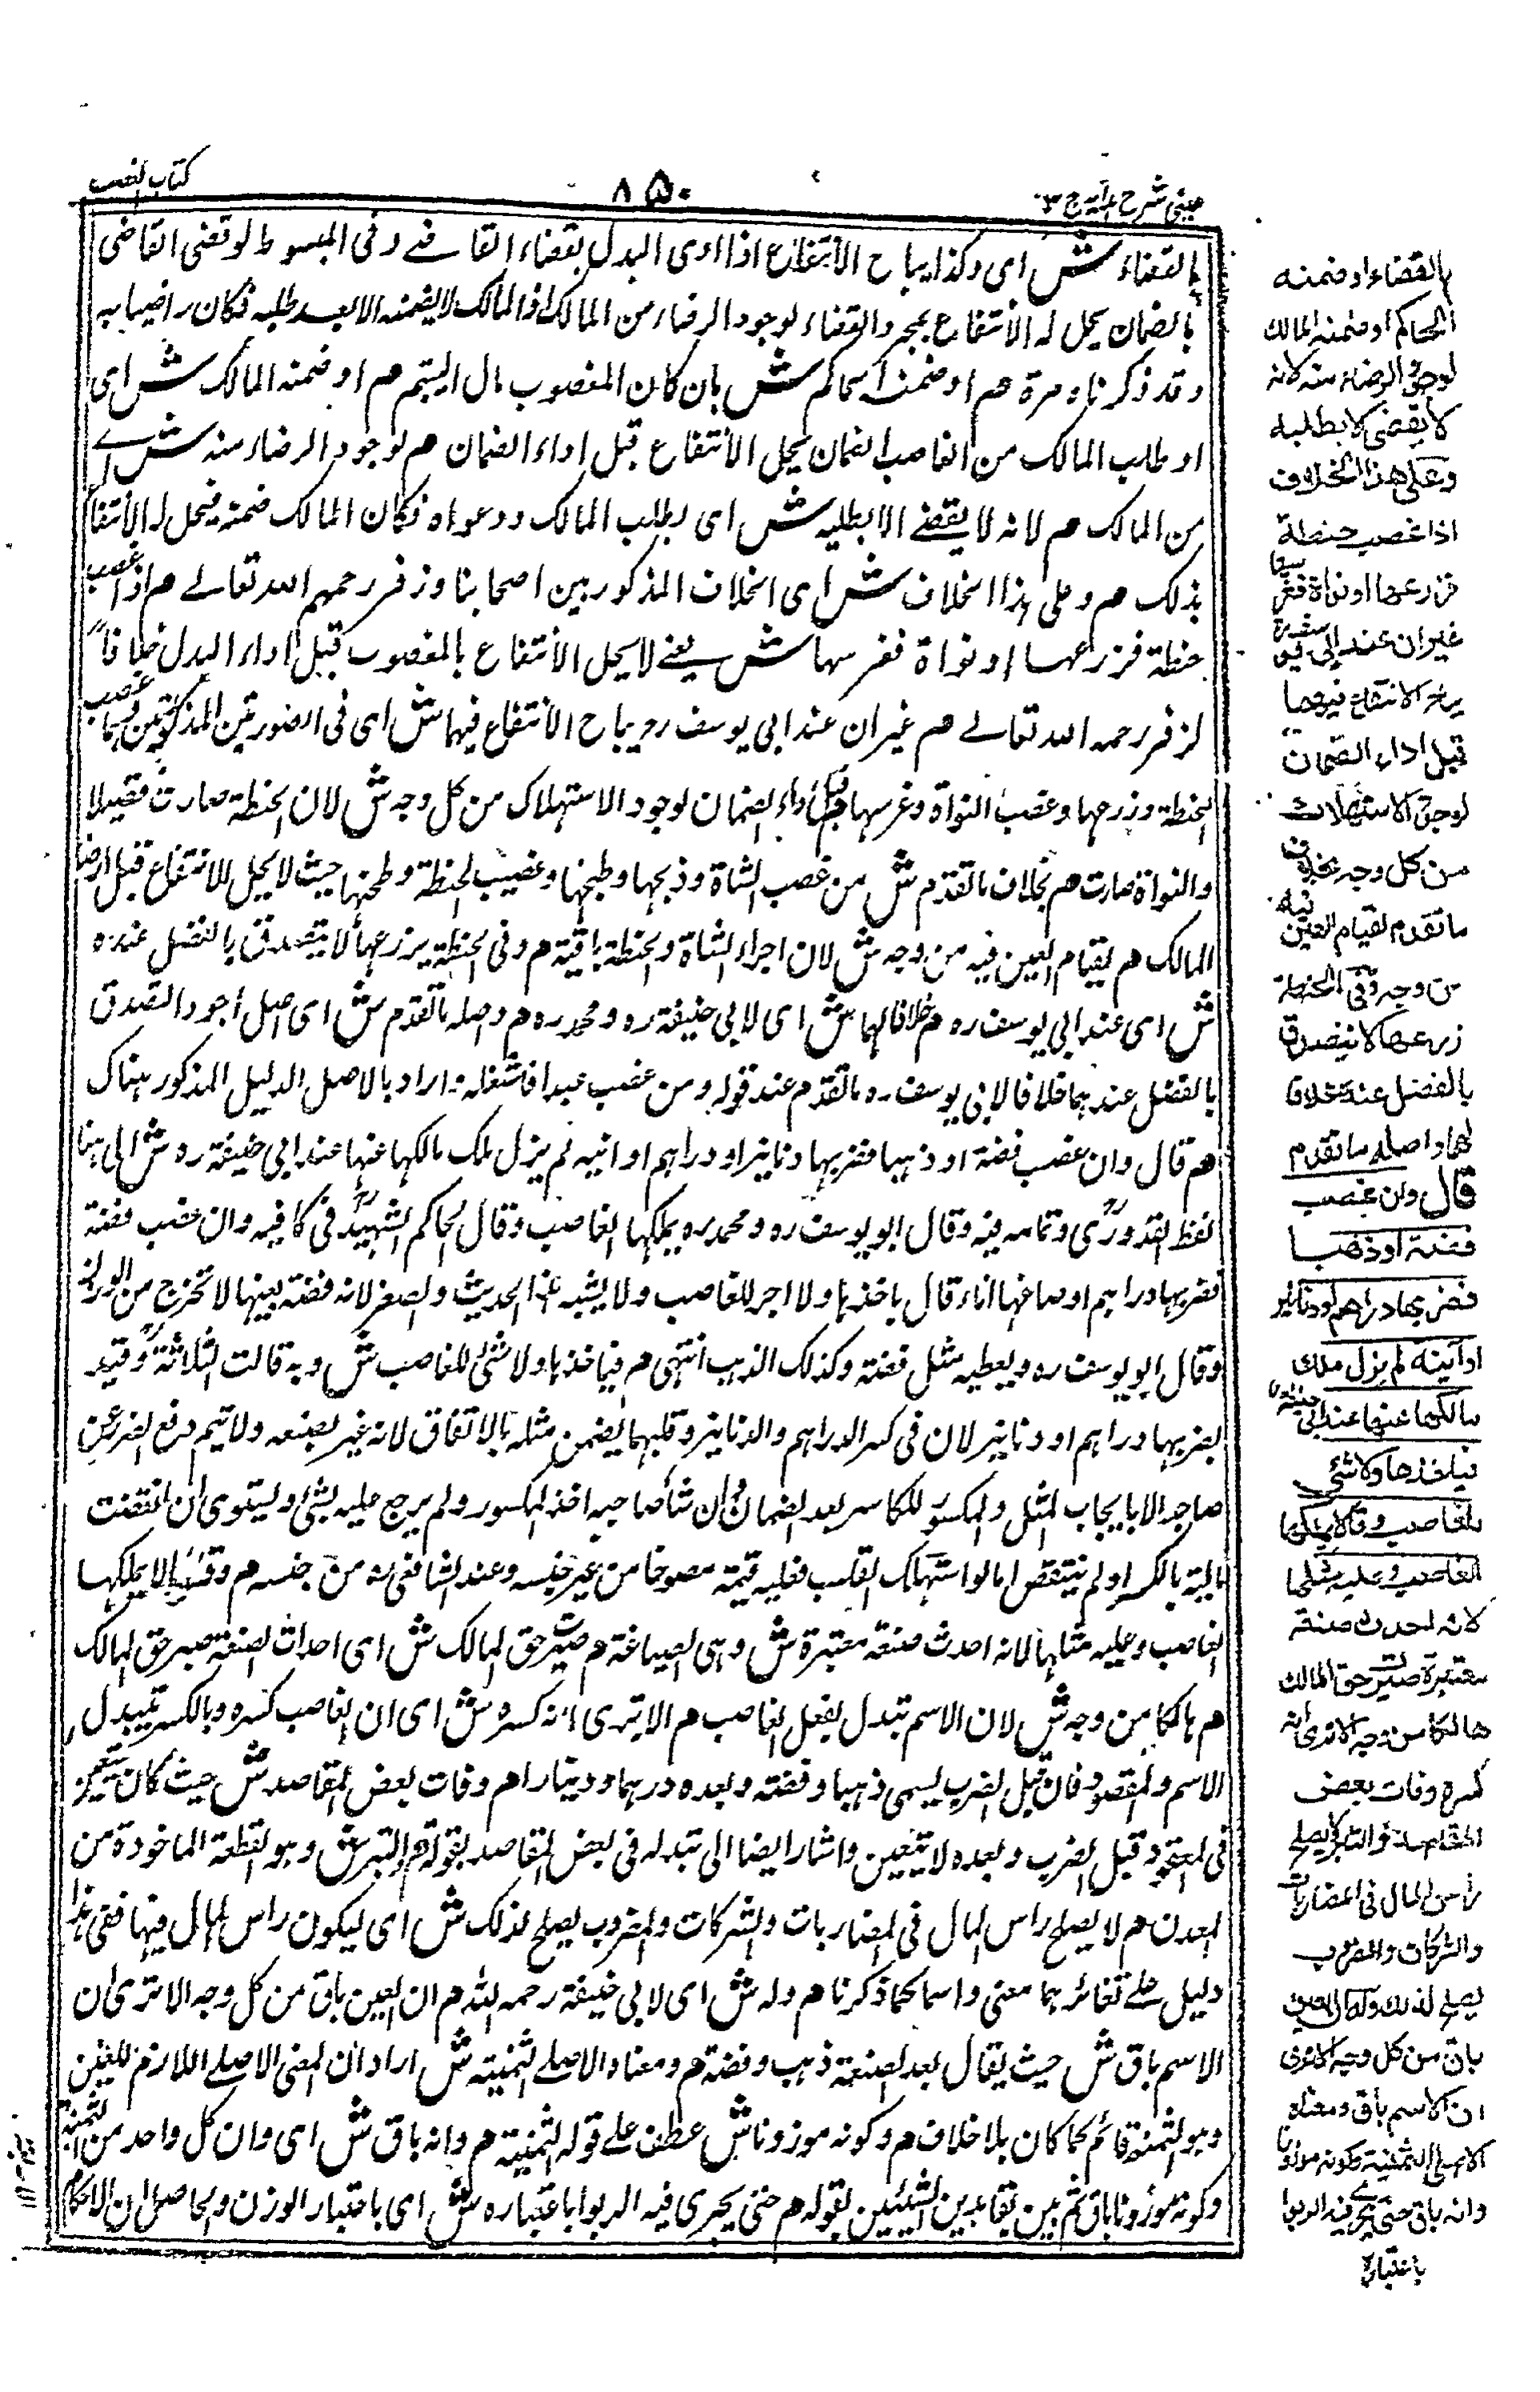 عینی شرح ہدایہ ج ۳
۸۵۰
کتاب الغصب
بالقضاء ش ای وکذا یباح الانتفاع اذا ادی البدل بقضاء القاضے وفی المبسوط لو قضی القاضی
بالضمان یحل لہ الانتفاع بمجرد القضاء لوجود الرضاء من المالک اذ المالک لا یضمنہ الا بعد طلبہ فکان راضیا بہ
وقد ذکرناہ مرۃ ھم او ضمنہ الحاکم ش بان کان المغصوب مال الیتیم ھم او ضمنہ المالک ش ای
او طلب المالک من الغاصب الضمان یحل الانتفاع قبل اداء الضمان ھم لوجود الرضاء منہ ش اے
من المالک ھم لانہ لا یقضے الا بطلبہ ش ای بطلب المالک ودعواہ فکان المالک ضمنہ فیحل لہ الانتفاع
بذلک ھم وعلی ہذا الخلاف ش ای الخلاف المذکور بین اصحابنا وزفر رحمہم اللہ تعالے ھم اذا غصب
حنطۃ فزرعہا او نواۃ فغرسہا ش یعنے لا یحل الانتفاع بالمغصوب قبل اداء البدل خلافا
لزفر رحمہ اللہ تعالے ھم غیر ان عند ابی یوسف رح یباح الانتفاع فیہما ش ای فی الصورتین المذکورتین وہما غصب
الحنطۃ وزرعہا وغصب النواۃ وغرسہا ھم قبل اداء الضمان لوجود الاستہلاک من کل وجہ ش لان الحنطۃ صارت قصیلا
والنواۃ صارت ھم بخلاف ما تقدم ش من غصب الشاۃ وذبحہا وطبخہا وغصب الحنطۃ وطحنہا حیث لا یحل الانتفاع قبل ارضاء
المالک ھم لقیام العین فیہ من وجہ ش لان اجزاء الشاۃ والحنطۃ باقیۃ ھم وفی الحنطۃ یزرعہا لا یتصدق بالفضل عندہ
ش ای عند ابی یوسف رہ ھم خلافا لہما ش ای لابی حنیفۃ رہ ومحمد رہ ھم واصلہ ما تقدم ش ای اصل وجود التصدق
بالفضل عندہما خلافا لابی یوسف رہ ما تقدم عند قولہ ومن غصب عبدا فاستغلہ واراد بالاصل الدلیل المذکور ہناک
ھم قال وان غصب فضۃ او ذہبا فضربہا دنانیر او دراہم او آنیۃ لم یزل ملک مالکہا عنہا عند ابی حنیفۃ رہ ش الی ہنا
لفظ القدوری وتمامہ فیہ وقال ابو یوسف رہ ومحمد رہ یملکہا الغاصب وقال الحاکم الشہید فی کافیہ وان غصب فضۃ
فضربہا دراہم او صاغہا اناء قال یاخذہا ولا اجر للغاصب ولا یشبہ ہذا الحدیث والصفر لانہ فضۃ بعینہا لا تخرج من الوزن
وقال ابو یوسف رہ ویعطیہ مثل فضتہ وکذلک الذہب انتہی ھم فیاخذہا ولا شئ للغاصب ش وبہ قالت الثلاثۃ وقید
بضربہا دراہم او دنانیر لان فی کسر الدراہم والدنانیر وقلبہما یضمن مثلہ بالاتفاق لانہ غیر بصنعہ ولا یتم دفع الضرر عن
صاحبہ الا بایجاب المثل والمکسور للکاسر بعد الضمان وان شاء صاحبہ اخذ المکسور ولم یرجع علیہ بشئ ویستوی ان انتقصت
مالیتہ بالکسر او لم ینتقص اما لو استہلک القلب فعلیہ قیمتہ مصوغا من غیر جنسہ وعند الشافعی رہ من جنسہ ھم وقالا یملکہا
الغاصب وعلیہ مثلہا لانہ احدث صنعۃ معتبرۃ ش وہی الصیاغۃ ھم صیرت حق المالک ش ای احداث الصنعۃ صیر حق المالک
ھم ہالکا من وجہ ش لان الاسم تبدل بفعل الغاصب ھم الا یتری انہ کسرہ ش ای ان الغاصب کسرہ وبالکسر یتبدل
الاسم والمقصود فان قبل الضرب یسمی ذہبا وفضۃ وبعدہ درہما ودینارا ھم وفات بعض المقاصد ش حیث کان یتعین
فی العقود قبل الضرب وبعدہ لا یتعین واشار ایضا الی تبدلہ فی بعض المقاصد بقولہ ھم والتبر ش وہو القطعۃ الماخوذۃ من
المعدن ھم لا یصلح راس المال فی المضاربات والشرکات والمضروب یصلح لذلک ش ای لیکون راس المال فیہا ففی ہذا
دلیل علے تغائرہما معنی واسما کما ذکرنا ھم ولہ ش ای لابی حنیفۃ رحمہ اللہ ھم ان العین باق من کل وجہ الا تری ان
الاسم باق ش حیث یقال بعد الصنعۃ ذہب وفضۃ ھم ومعناہ الاصلے الثمنیۃ ش اراد ان المعنی الاصلے اللازم للعین
وہو الثمنیۃ قائم کما کان بلا خلاف ھم وکونہ موزونا ش عطف علے قولہ الثمنیۃ ھم وانہ باق ش ای وان کل واحد من الثمنیۃ
وکونہ موزونا باق ثم بین بقاء ہذین الشیئین بقولہ ھم حتی یجری فیہ الربوا باعتبارہ ش ای باعتبار الوزن والحاصل ان الاحکام
بالقضاء او ضمنہ
الحاکم او ضمنہ المالک
لوجود الرضاء منہ لانہ
لا یقضی الا بطلبہ
وعلی ھذا الخلاف
اذا غصب حنطۃ
فزرعھا او نواۃ فغرسھا
غیر ان عند ابی یوسف
یباح الانتفاع فیھما
قبل اداء الضمان
لوجود الاستھلاک
من کل وجہ بخلاف
ما تقدم لقیام العین فیہ
من وجہ وفی الحنطۃ
یزرعھا لا یتصدق
بالفضل عندہ خلافا
لھما واصلہ ما تقدم
قال وان غصب
فضۃ او ذھبا
فضربھا دراھم او دنانیر
او آنیۃ لم یزل ملک
مالکھا عنھا عند ابی حنیفۃ
فیاخذھا ولا شئ
للغاصب وقالا یملکھا
الغاصب وعلیہ مثلھا
لانہ احدث صنعۃ
معتبرۃ صیرت حق المالک
ھالکا من وجہ الا تری انہ
کسرہ وفات بعض
المقاصد والتبر لا یصلح
رأس المال فی المضاربات
والشرکات والمضروب
یصلح لذلک ولہ ان العین
باق من کل وجہ الا تری
ان الاسم باق ومعناہ
الاصلی الثمنیۃ وکونہ موزونا
وانہ باق حتی یجری فیہ الربوا
باعتبارہ